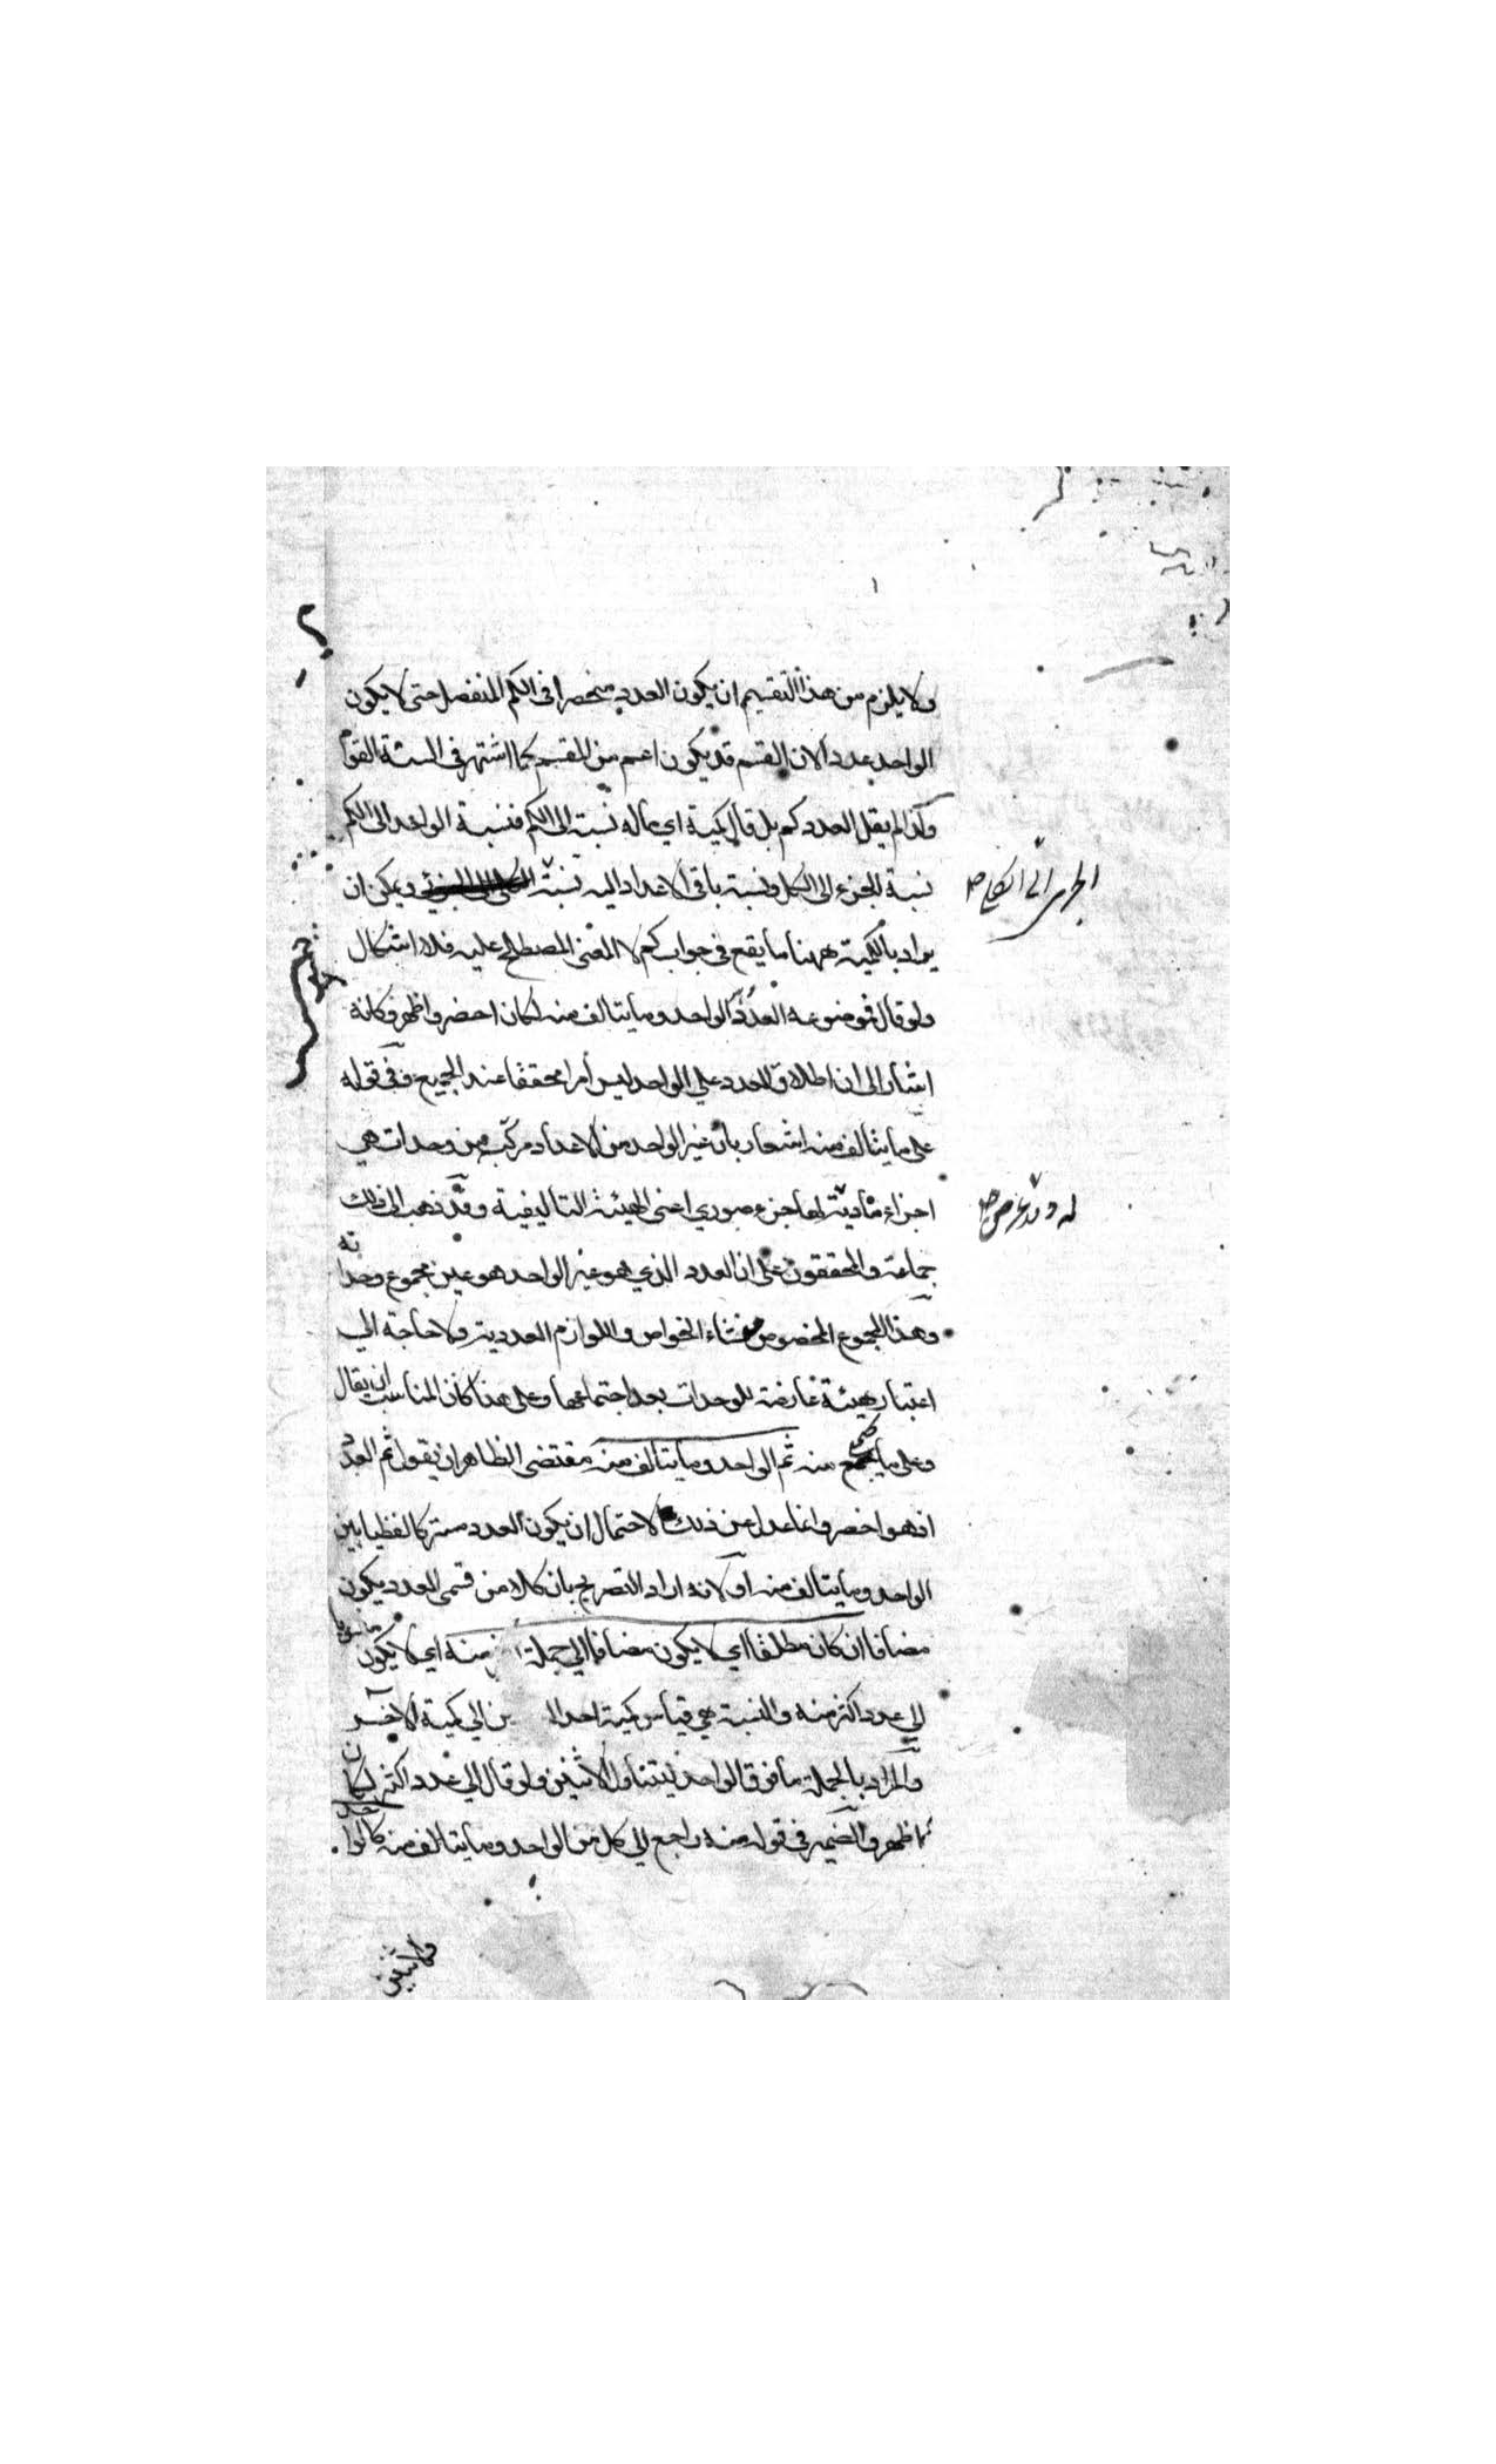 ولا يلزم من هذا التقسيم ان يكون العدد منحصرا فى الكم المنفصل حتى لا يكون
الواحد عددا لان القسم قد يكون اعم من المقسم كما اشتهر فى
ولذا لم يقل العدد كم بل قال كمية اي ماله نسبت الى الكم فنسبة الواحد الى الكم
نسبة الجزء الى الكل ونسبة باقى الاعداد اليه نسبة ويمكن ان
الجزئى الى الكلى صح
يراد بالكمية ههنا ما يقع فى جواب كم لا المعنى المصطلح عليه فلا اشكال
ولو قال فموضوعه العدد الواحد وما يتالف منه لكان اخصر واظهر وكانه
اشار الى ان اطلاق العدد علي الواحد ليس أمرا محققا عند الجميع وفى قوله
على ما يتالف منه اشعار بان غير الواحد من الاعداد مركب من وحدات هي
اجزاء مادية لها جزء صوري اعنى الهيئة التاليفية وقد ذهب الى ذلك
جماعة والمحققون على ان العدد الذي هو غير الواحد هو عين مجموع وحداته
وهذا المجموع المخصوص منشاء الخواص واللوازم العددية ولا حاجة الي
اعتبار هيئة عارضة للوحدات بعد اجتماعها وعلى هذا كان المناسب ان يقال
وعلى ما منه ثم الواحد وما يتالف منه مقتضى الظاهر ان يقول ثم العدد
اذ هو اخصر وانما عدل عن ذلك لاحتمال ان يكون العدد مشتركا لفظيا بين
الواحد وما يتالف منه او لانه اراد التصريح بان كلا من قسمى العدد يكون
مضافا ان كان مطلقا اي لا يكون مضافا الي جملة منه اي لا يكون
الي عدد اكثر منه والنسبة هي قياس كمية احد الي كمية الاخر
والمراد بالجملة ما فوق الواحد ليتناول الاثنين ولو قال الي عدد اكثر لكان
اظهر والضمير فى قوله منه راجع الي كل من الواحد وما يتالف منه كالواحد
والاثنين